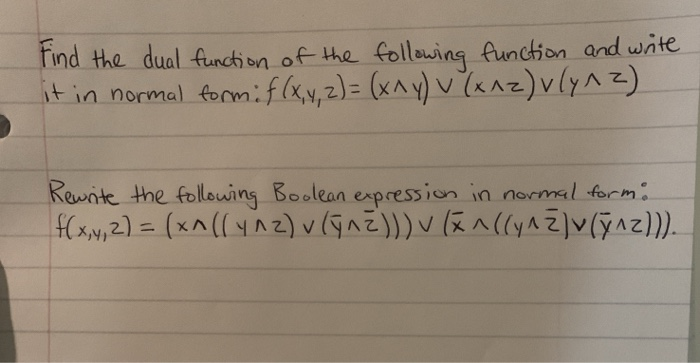 Find the dual function of the following function and write
it in normal form: f(x,y,z) = (x∧y) ∨ (x∧z) ∨ (y∧z)
Rewrite the following Boolean expression in normal form:
f(x,y,z) = (x∧((y∧z)∨(y̅∧z̅)))∨(x̅∧((y∧z̅)∨(y̅∧z))).